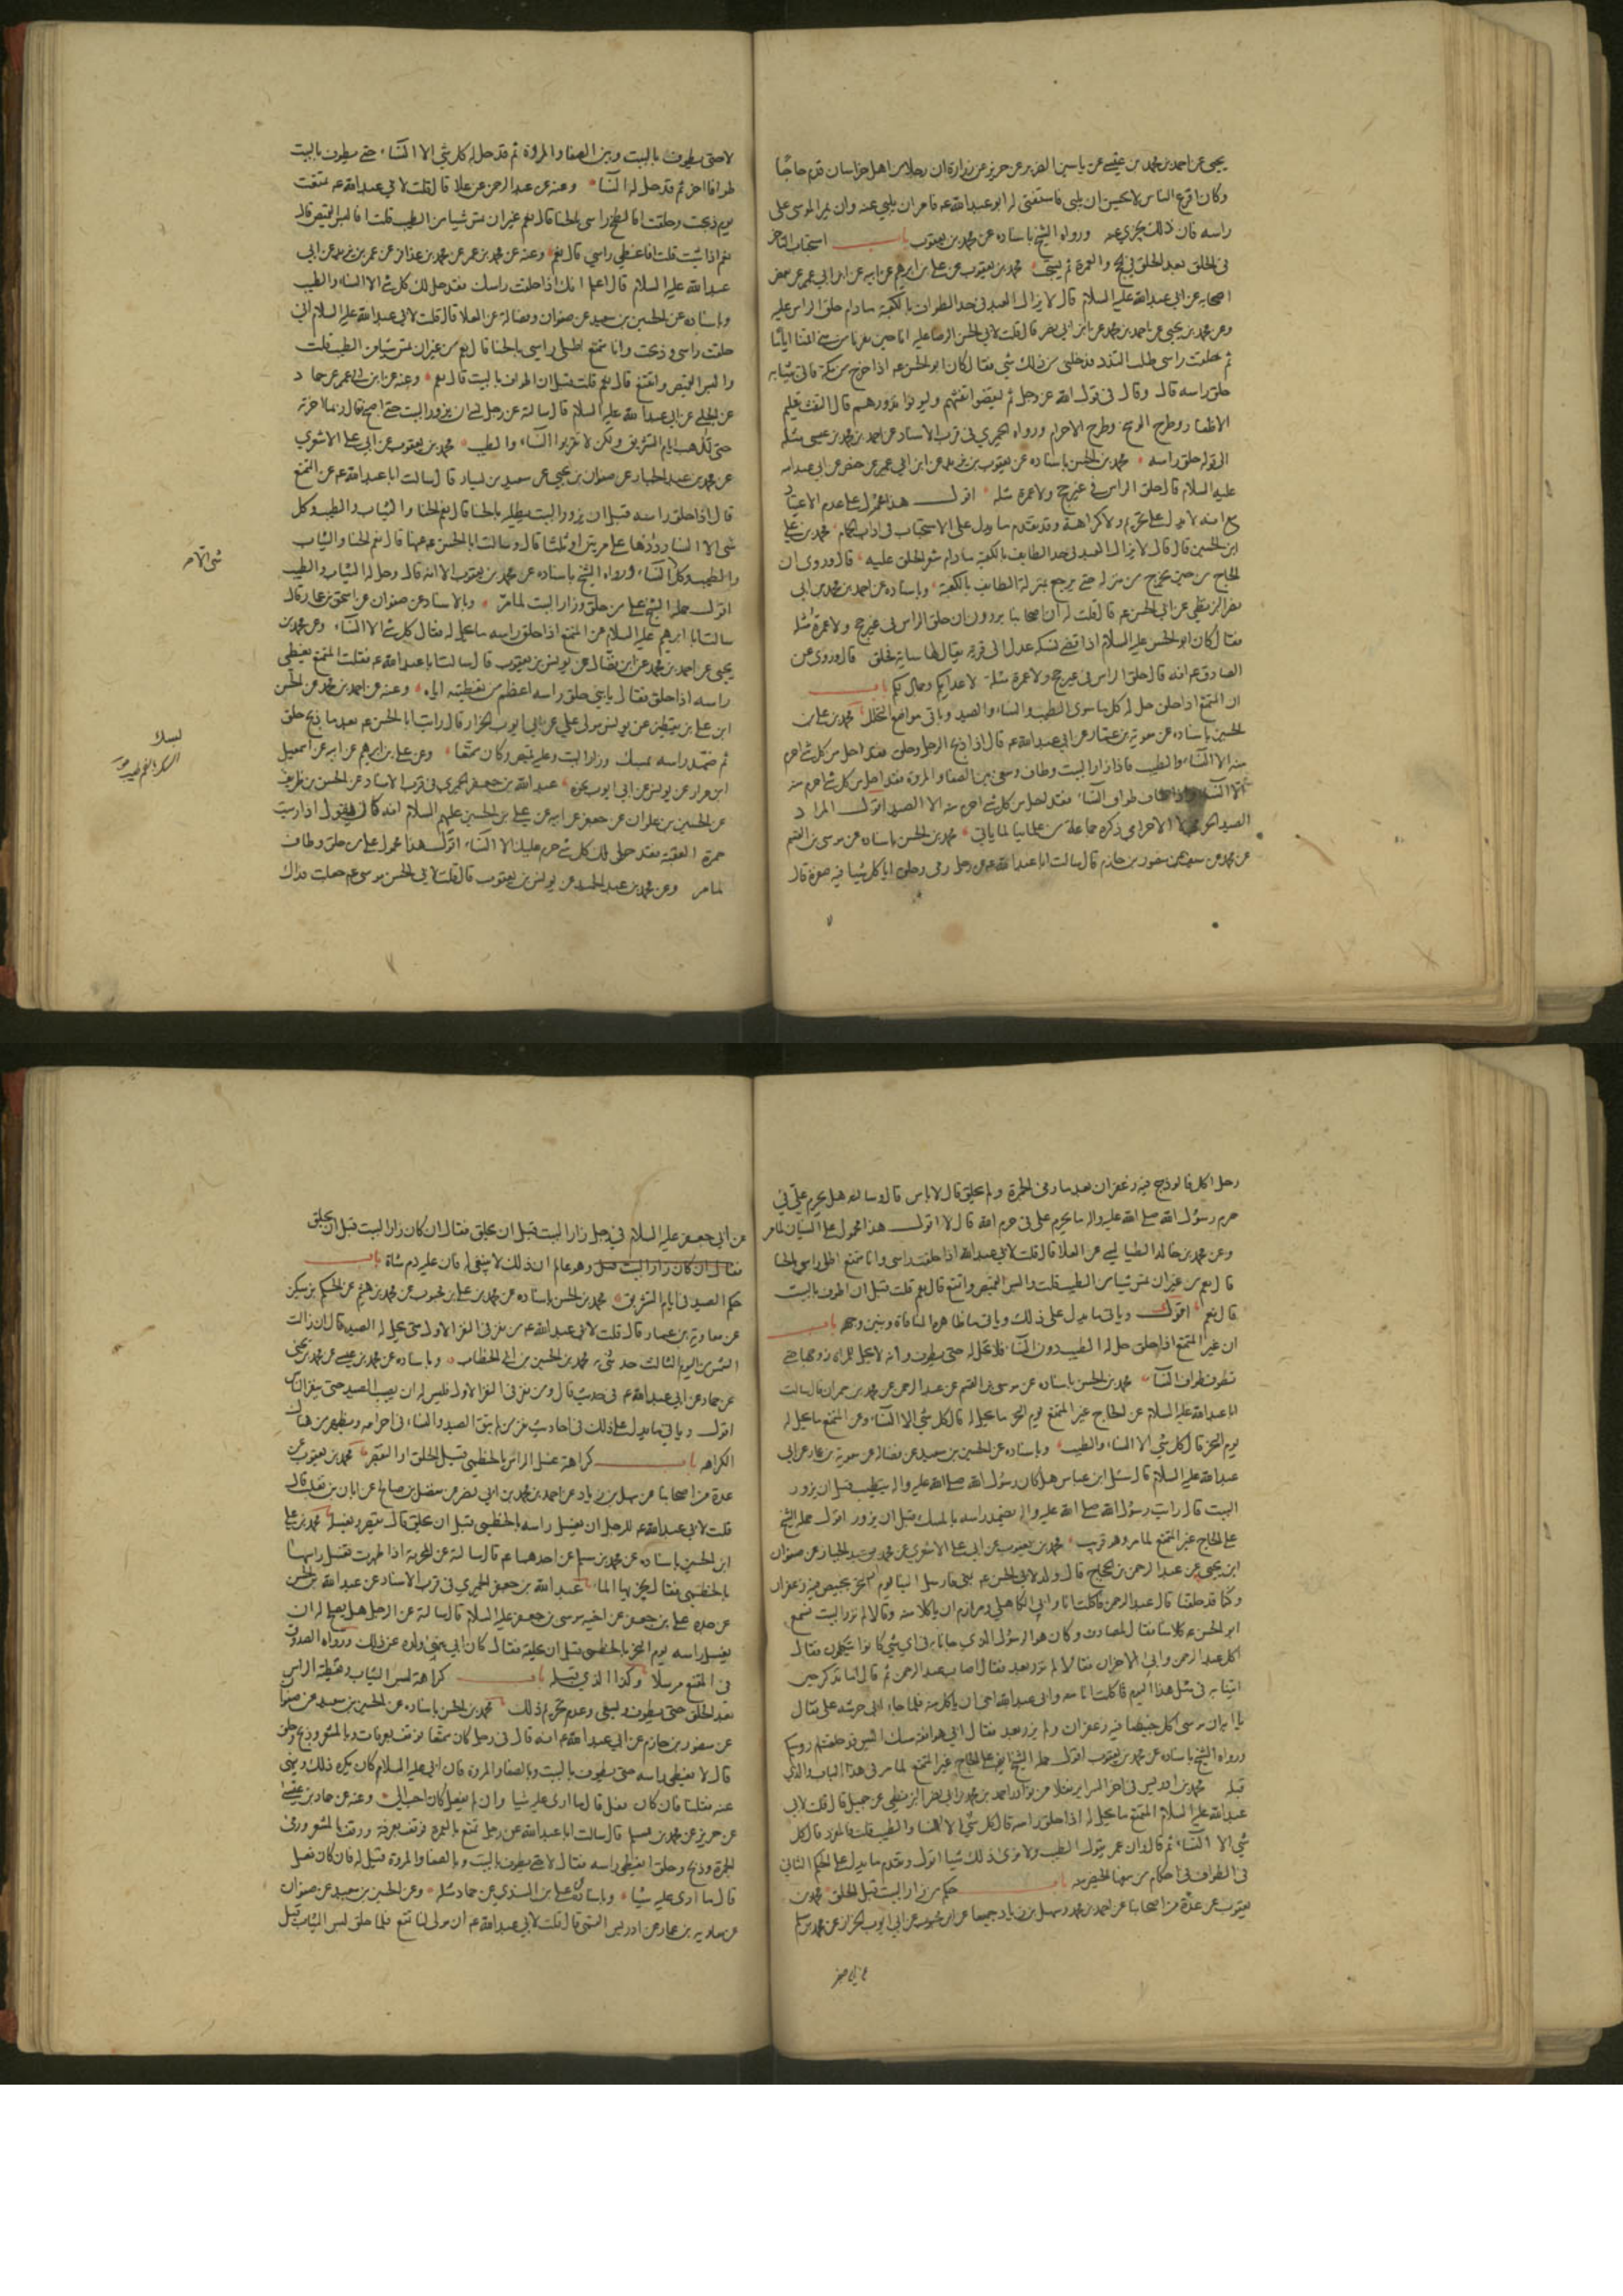 يحيى عن احمد بن محمد بن عيسى عن ياسين الضرير عن حريز عن زرارة ان رجلا من اهل خراسان قدم حاجا
وكان اقرع الراس لا يحسن ان يلبي فاستفتى له ابو عبدالله ع فامر ان يلبى عنه وان يمر الموسى على
راسه فان ذلك يجزي عنه ورواه الشيخ باسناده عن محمد بن يعقوب باب استحباب
في الحلق بعد الحلق في الحج والعمرة محمد بن يعقوب عن علي بن ابرهيم عن ابيه عن ابن ابي عمير عن بعض
اصحابه عن ابي عبدالله عليه السلام قال لا يزال العبد في حد الطواف بالكعبة مادام حلق الراس عليه
وعن محمد بن يحيى عن احمد بن محمد عن ابن ابي نصر قال قلت لابي الحسن الرضا عليه انا حين نفرنا من منى اقمنا اياما
ثم حلقت راسي طلب التلذذ فدخلني من ذلك شي فقال كان ابو الحسن ع اذا خرج من مكة فاتي بثيابه
حلق راسه قال وقال في قول الله عز وجل ثم ليقضوا تفثهم وليوفوا نذورهم قال التفث تقليم
الاظفار وطرح الوسخ وطرح الاحرام ورواه الحميري في قرب الاسناد عن احمد بن محمد بن عيسى مثله
الى قوله حلق راسه محمد بن الحسن باسناده عن يعقوب بن يزيد عن ابن ابي عمير عن حفص عن ابي عبدالله
عليه السلام قال حلق الراس في غير حج ولا عمرة مثلة اقول هذا محمول على عدم الاعتياد
مع انه لا يدل على تحريم ولا كراهة وقد تقدم ما يدل على الاستحباب في اداب الحمام محمد بن علي
ابن الحسين قال قال لا يزال العبد في حد الطائف بالكعبة مادام شعر الحلق عليه قال وروي ان
الحاج من حين يخرج من منزله حتى يرجع بمنزلة الطائف بالكعبة وباسناده عن احمد بن محمد بن ابي
نصر البزنطي عن ابي الحسن ع قال قلت له ان اصحابنا يروون ان حلق الراس في غير حج ولا عمرة مثلة
فقال كان ابو الحسن عليه السلام اذا قضى نسكه عدل الى قرية يقال لها ساية فحلق قال وروي عن
الصادق ع انه قال حلق الراس في غير حج ولا عمرة مثلة لاعدائكم وجمال لكم باب
ان المتمتع اذا حلق حل له كل ما سوى الطيب والنساء والصيد وباقي مواضع التحلل محمد بن علي بن
الحسين باسناده عن معوية بن عمار عن ابي عبدالله ع قال اذا ذبح الرجل وحلق فقد احل من كل شي احرم
منه الا النساء والطيب فاذا زار البيت وطاف وسعى بين الصفا والمروة فقد احل من كل شي احرم منه
الا النساء واذا طاف طواف النساء فقد احل من كل شي احرم منه الا الصيد اقول المراد
الصيد الحرمي لا الاحرامي ذكره جماعة من علمائنا لما ياتي محمد بن الحسن باسناده عن موسى بن القسم
عن محمد عن سيف عن منصور بن حازم قال سالت ابا عبدالله ع عن رجل رمى وحلق اياكل شيا فيه صفرة قال
لا
لا حتى يطوف بالبيت وبين الصفا والمروة ثم قد حل له كل شي الا النساء حتى يطوف بالبيت
طوافا اخر ثم قد حل له النساء وعنه عن عبد الرحمن عن علا قال قلت لابي عبدالله ع تمتعت
يوم ذبحت وحلقت افالطخ راسي بالحنا قال نعم من غير ان تمس شيا من الطيب قلت افالبس القميص قال
نعم اذا شئت قلت افاغطي راسي قال نعم وعنه عن محمد بن عمر عن محمد بن عذافر عن عمر بن يزيد عن ابي
عبدالله عليه السلام قال اعلم انك اذا حلقت راسك فقد حل لك كل شي الا النساء والطيب
وباسناده عن الحسين بن سعيد عن صفوان وفضالة عن العلا قال قلت لابي عبدالله عليه السلام اني
حلقت راسي وذبحت وانا متمتع اطلي راسي بالحنا قال نعم من غير ان تمس شيا من الطيب قلت
والبس القميص واتقنع قال نعم قلت قبل ان اطوف بالبيت قال نعم وعنه عن ابن ابي عمير عن حماد
عن الحلبي عن ابي عبدالله عليه السلام قال سالته عن رجل نسي ان يزور البيت حتى اصبح قال ربما اخرته
حتى تذهب ايام التشريق ولكن لا تقربوا النساء والطيب محمد بن يعقوب عن ابي علي الاشعري
عن محمد بن عبد الجبار عن صفوان بن يحيى عن سعيد بن يسار قال سالت ابا عبدالله ع عن المتمتع
قال اذا حلق راسه قبل ان يزور البيت يطليه بالحنا قال نعم الحنا والثياب والطيب وكل
شي الا النساء رددها علي مرتين او ثلثا قال وسالت ابا الحسن ع عنها قال نعم الحنا والثياب
والطيب وكل شي الا النساء ورواه الشيخ باسناده عن محمد بن يعقوب الا انه قال وحل له الثياب والطيب
اقول حمله الشيخ على من حلق وزار البيت لما مر وبالاسناد عن صفوان عن اسحق بن عمار قال
سالت ابا ابرهيم عليه السلام عن المتمتع اذا حلق راسه ما يحل له فقال كل شي الا النساء وعن محمد بن
يحيى عن احمد بن محمد عن ابن فضال عن يونس بن يعقوب قال سالت ابا عبدالله ع فقلت المتمتع يغطي
راسه اذا حلق فقال يا بني حلق راسه اعظم من تغطيته اياه وعنه عن احمد بن محمد عن الحسن
ابن علي بن يقطين عن يونس مولى علي عن ابي ايوب الخزاز قال رايت ابا الحسن ع بعد ما ذبح حلق
ثم ضمد راسه بمسك وزار البيت وعليه قميص وكان متمتعا وعن علي بن ابرهيم عن ابيه عن اسمعيل
ابن مرار عن يونس عن ابي ايوب نحوه عبدالله بن جعفر الحميري في قرب الاسناد عن الحسن بن ظريف
عن الحسين بن علوان عن جعفر عن ابيه عن علي بن الحسين عليهم السلام انه كان يقول اذا رميت
جمرة العقبة فقد حل لك كل شي حرم عليك الا النساء اقول هذا محمول على من حلق وطاف
لما مر وعن محمد بن عبد الحميد عن يونس بن يعقوب قال قلت لابي الحسن موسى ع جعلت فداك
رجل اكل فالوذج فيه زعفران بعد ما رمى الجمرة ولم يحلق قال لا باس قال وسالته هل يحرم علي في
حرم رسول الله صلى الله عليه واله ما يحرم علي في حرم الله قال لا اقول هذا محمول على النسيان لما مر
وعن محمد بن خالد الطيالسي عن العلا قال قلت لابي عبدالله اذا حلقت راسي وانا متمتع اطلي راسي بالحنا
قال نعم من غير ان تمس شيا من الطيب قلت والبس القميص واتقنع قال نعم قلت قبل ان اطوف بالبيت
قال نعم اقول وياتي ما يدل على ذلك وياتي ما ظاهره المنافاة ونبين وجهه باب
ان غير المتمتع اذا حلق حل له الطيب دون النساء فلا تحل له حتى يطوف وانه لا يحل للمراة زوجها حتى
تطوف طواف النساء محمد بن الحسن باسناده عن موسى بن القسم عن عبد الرحمن عن محمد بن حمران قال سالت
ابا عبدالله عليه السلام عن الحاج غير المتمتع يوم النحر ما يحل له قال كل شي الا النساء وعن المتمتع ما يحل له
يوم النحر قال كل شي الا النساء والطيب وباسناده عن الحسين بن سعيد عن فضالة عن معوية بن عمار عن ابي
عبدالله عليه السلام قال سئل ابن عباس هل كان رسول الله صلى الله عليه واله يتطيب قبل ان يزور
البيت قال رايت رسول الله صلى الله عليه واله يضمد راسه بالمسك قبل ان يزور اقول حمله الشيخ
على الحاج غير المتمتع لما مر وهو قريب محمد بن يعقوب عن ابي علي الاشعري عن محمد بن عبد الجبار عن صفوان
ابن يحيى عن عبد الرحمن بن الحجاج قال ولد لابي الحسن ع بمنى فارسل الينا يوم النحر بخبيص فيه زعفران
وكنا قد حلقنا قال عبد الرحمن فاكلت انا وابى الكاهلي ومرازم ان ياكلا منه وقالا لم نزر البيت فسمع
ابو الحسن ع كلامنا فقال لمصادف وكان هو الرسول الذي جاءنا به في اي شي كانوا يتكلمون فقال
اكل عبد الرحمن وابى الاخران فقالا لم نزر بعد فقال اصاب عبد الرحمن ثم قال اما تذكر حين
اتينا به في مثل هذا اليوم فاكلت انا منه وابى عبدالله اخي ان ياكل منه فلما جاء ابي حرشه علي فقال
يا ابه ان موسى اكل خبيصا فيه زعفران ولم يزر بعد فقال ابي هو افقه منك اليس قد حلقتم روسكم
ورواه الشيخ باسناده عن محمد بن يعقوب اقول حمله الشيخ ايضا على الحاج غير المتمتع لما مر في هذا الباب والذي
قبله محمد بن ادريس في اخر السراير نقلا من نوادر احمد بن محمد بن ابي نصر البزنطي عن جميل قال قلت لابي
عبدالله عليه السلام المتمتع ما يحل له اذا حلق راسه قال كل شي الا النساء والطيب قلت فالمفرد قال كل
شي الا النساء ثم قال وان عمر يقول الطيب ولا نرى ذلك شيا اقول وتقدم ما يدل على الحكم الثاني
في الطواف في احكام من منعها الحيض منه باب حكم من زار البيت قبل الحلق محمد بن
يعقوب عن عدة من اصحابنا عن احمد بن محمد وسهل بن زياد جميعا عن ابن محبوب عن ابي ايوب الخزاز عن محمد بن مسلم
عن ابي جعفر
عن ابي جعفر عليه السلام في رجل زار البيت قبل ان يحلق فقال ان كان زار البيت قبل ان يحلق
وهو عالم ان ذلك لا ينبغي له فان عليه دم شاة باب
حكم الصيد في ايام التشريق محمد بن الحسن باسناده عن محمد بن علي بن محبوب عن محمد بن هيثم عن الحكم بن مسكين
عن معاوية بن عمار قال قلت لابي عبدالله ع من نفر في النفر الاول متى يحل له الصيد قال اذا زالت
الشمس من اليوم الثالث حدثني به محمد بن الحسين بن ابي الخطاب وباسناده عن محمد بن عيسى عن محمد بن يحيى
عن حماد عن ابي عبدالله ع في حديث قال ومن نفر في النفر الاول فليس له ان يصيب الصيد حتى ينفر الناس
اقول وياتي ما يدل على ذلك في احاديث من لم يتق الصيد والنساء في احرامه ويظهر من هناك
الكراهة باب كراهة غسل الراس بالخطمي قبل الحلق او التقصير محمد بن يعقوب عن
عدة من اصحابنا عن سهل بن زياد عن احمد بن محمد بن ابي نصر عن مفضل بن صالح عن ابان بن تغلب قال
قلت لابي عبدالله ع للرجل ان يغسل راسه بالخطمي قبل ان يحلق قال يقصر ويغسل محمد بن علي
ابن الحسين باسناده عن محمد بن مسلم عن احدهما ع قال سالته عن المحرمة اذا طهرت تغسل راسها
بالخطمي فقال يجزيها الماء عبدالله بن جعفر الحميري في قرب الاسناد عن عبدالله بن الحسن
عن جده علي بن جعفر عن اخيه موسى بن جعفر عليه السلام قال سالته عن الرجل هل يصلح له ان
يغسل راسه يوم النحر بالخطمي قبل ان يحلقه فقال كان ابي ينهى ولده عن ذلك ورواه الصدوق
في المقنع مرسلا وكذا الذي قبله باب كراهة لبس الثياب وتغطية الراس
بعد الحلق حتى يطوف ويسعى وعدم تحريم ذلك محمد بن الحسن باسناده عن الحسين بن سعيد عن صفوان
عن منصور بن حازم عن ابي عبدالله ع انه قال في رجل كان متمتعا فوقف بعرفات وبالمشعر وذبح وحلق
قال لا يغطي راسه حتى يطوف بالبيت وبالصفا والمروة فان ابي عليه السلام كان يكره ذلك وينهى
عنه فقلنا فان كان فعل قال ما ارى عليه شيا وان لم يفعل كان احب الي وعنه عن حماد بن عيسى
عن حريز عن محمد بن مسلم قال سالت ابا عبدالله عن رجل تمتع بالعمرة فوقف بعرفة ووقف بالمشعر ورمى
الجمرة وذبح وحلق ايغطي راسه فقال لا حتى يطوف بالبيت وبالصفا والمروة فقيل له فان كان فعل
قال ما ارى عليه شيا وباسناده عن علي بن السندي عن حماد مثله وعن الحسين بن سعيد عن صفوان
عن معاوية بن عمار عن ادريس القمي قال قلت لابي عبدالله ع ان مولى لنا تمتع فلما حلق لبس الثياب قبل